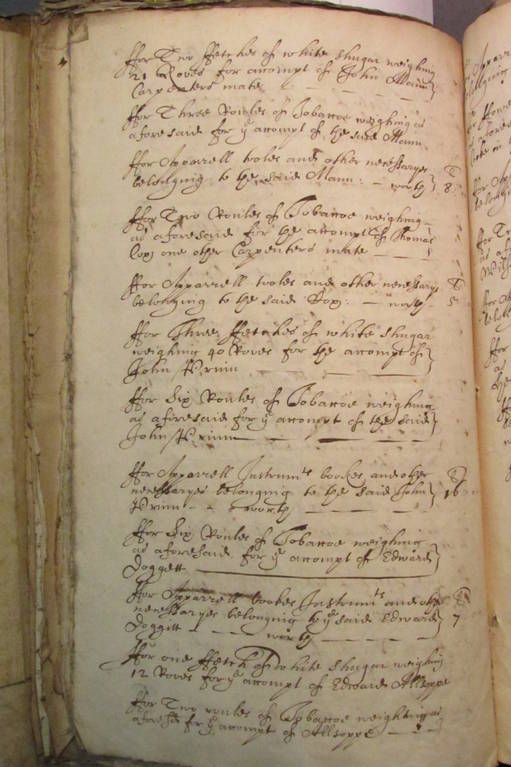 ffor Two ffetches of white shugar weighing
21 Roves for accompt of John Mann
Carpenters mate
ffor Three Roules of Tobaccoe weighing as
aforesaid for ye accompt of the said Mann
ffor Apparrell tooles and other necessaryes
belonging to the said Mann: - worth 8
ffor Two Roules of Tobaccoe weighing
as aforesaid for the accompt of Thomas
one other Carpenters mate
ffor Apparrell tooles and other necessarys
belonging to the said : - worth 5
ffor Three ffetches of white shugar
weighing 40 Roves for the accompt of
John
ffor Six Roules of Tobaccoe weighing
as aforesaid for ye accompt of the said
John
ffor Apparrell Instrumts bookes and other
necessaryes belonging to the said John 16
worth
ffor Six Roules of Tobaccoe weighing
as aforesaid for ye accompt of Edward
Doggett
ffor Apparrell bookes Instrumts and other
necessaryes belonging to ye said Edward 7
Doggett worth
ffor one ffetch of white shugar weighing
12 Roves for ye accompt of Edward Allsoppe
ffor Two roules of Tobaccoe weighting as
aforesd for ye accompt of Allsoppe